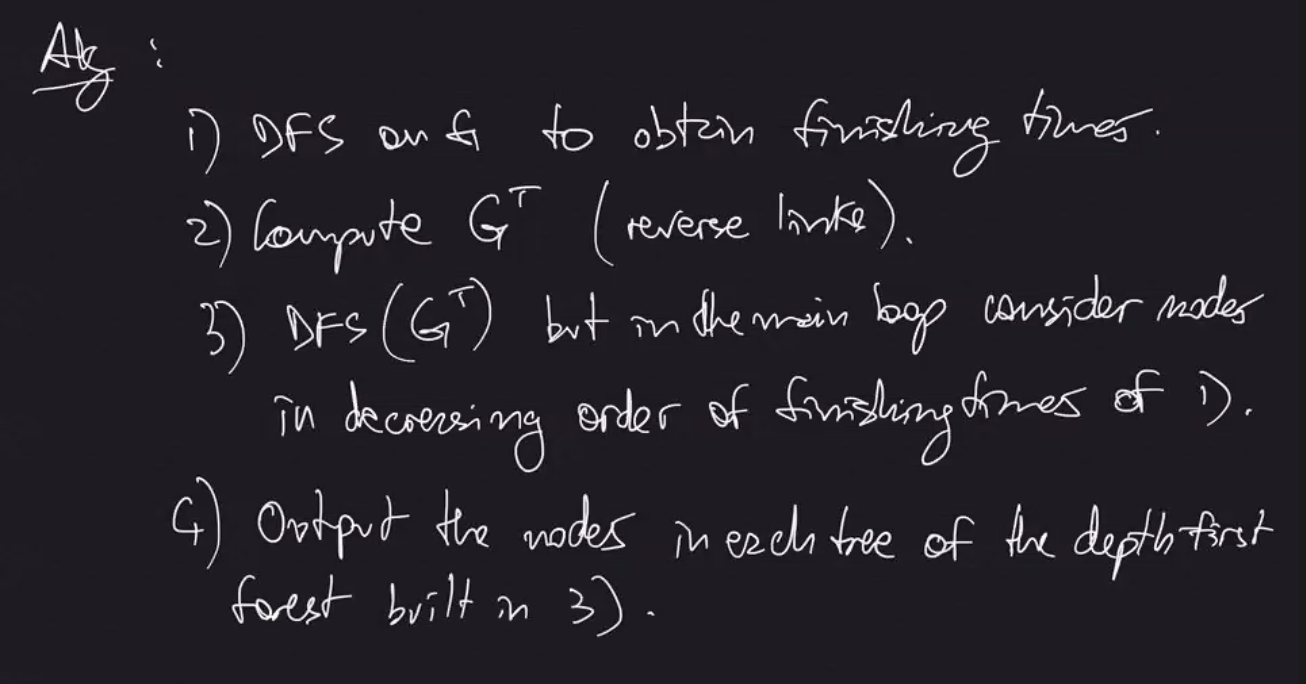 Alg :
1) DFS on G to obtain finishing times.
2) Compute Gᵀ (reverse links).
3) DFS(Gᵀ) but in the main loop consider nodes
in decreasing order of finishing times of 1).
4) Output the nodes in each tree of the depth-first
forest built in 3).